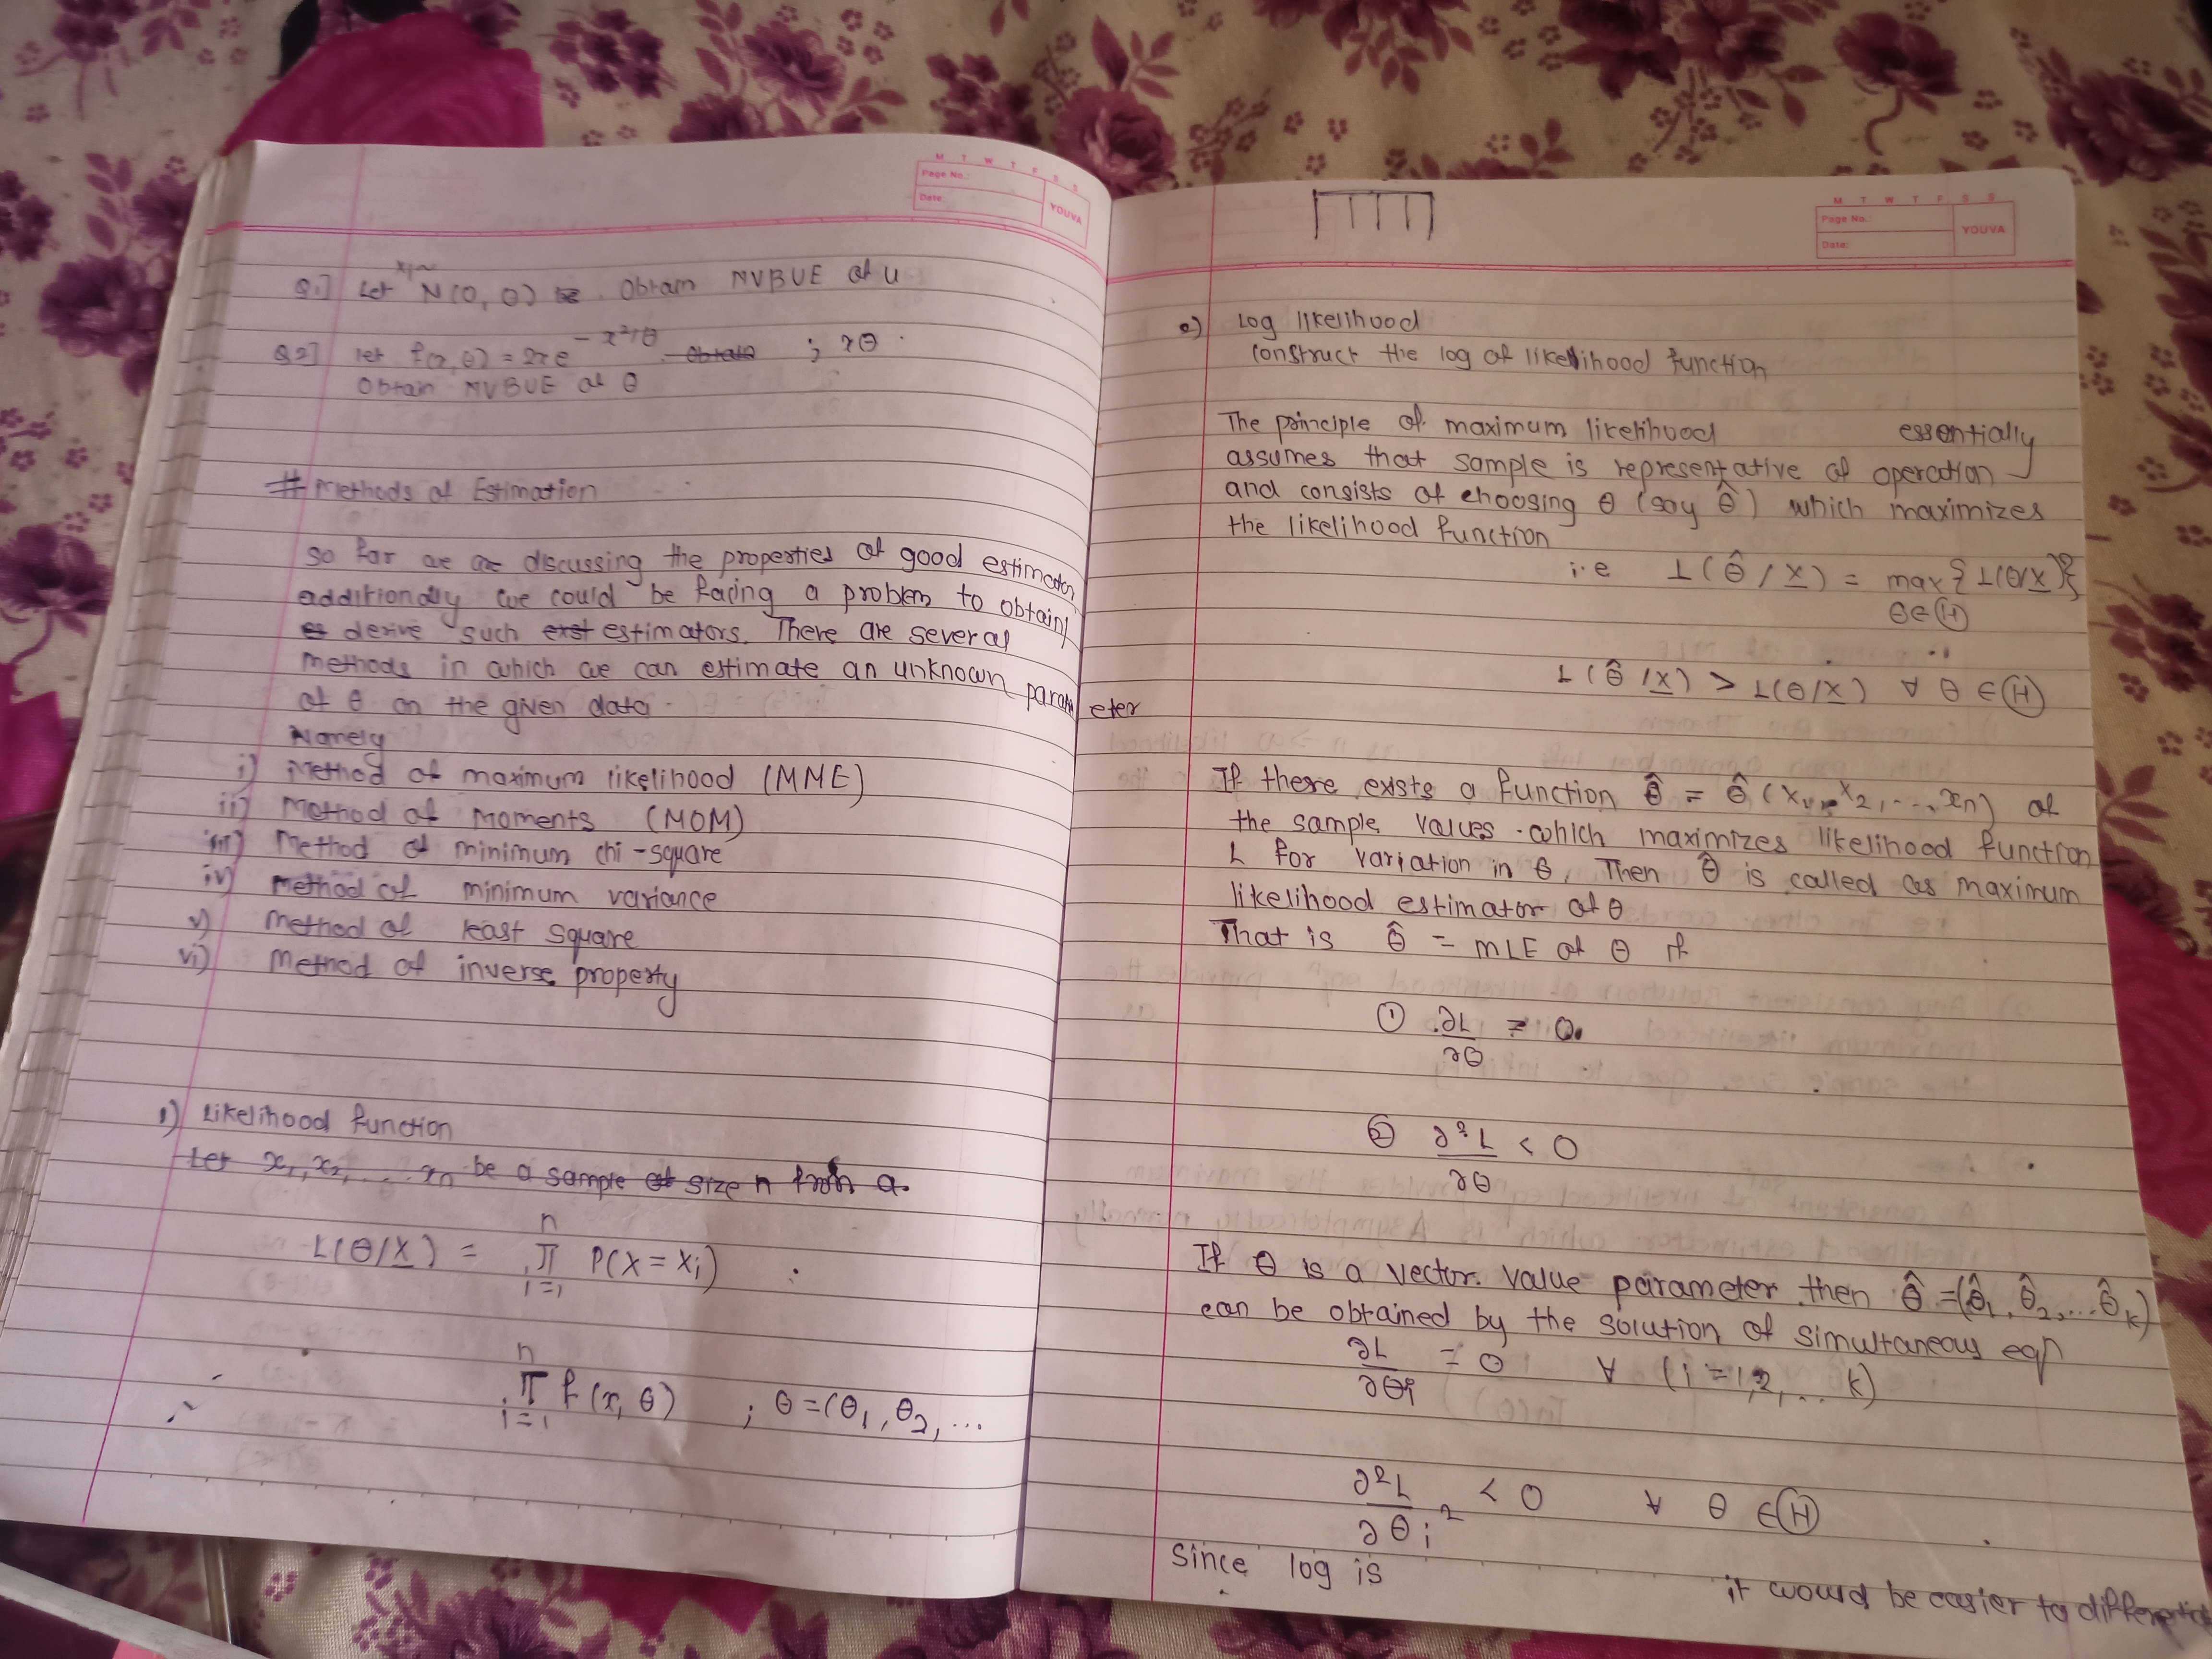 M T W T F S S
Page No.:
Date:
YOUVA
Q.1] Let x1~ N(0, θ) Obtain MVBUE of u
Q2] let f(x, θ) = 2x e^{-x²/θ} ; xθ .
Obtain MVBUE of θ
# Methods of Estimation
so far we are discussing the properties of good estimator
additionally we could be facing a problem to obtain/
derive such estimators. There are several
methods in which we can estimate an unknown parameter
of θ on the given data.
Namely
i) Method of maximum likelihood (MME)
ii) Method of moments (MOM)
iii) Method of minimum chi-square
iv) Method of minimum variance
v) Method of least square
vi) Method of inverse property
1) Likelihood function
Let x1, x2, ... xn be a sample of size n from a.
L(θ/X) = n π i=1 P(X = xi)
n π i=1 f(x, θ) ; θ = (θ1, θ2, ...
M T W T F S S
Page No.:
Date:
YOUVA
2) Log likelihood
construct the log of likelihood function
The principle of maximum likelihood essentially
assumes that sample is representative of operation
and consists of choosing θ (say θ̂) which maximizes
the likelihood function
i.e L(θ̂/X) = max {L(θ/X)}
θ∈Ⓗ
L(θ̂/X) > L(θ/X) ∀ θ ∈ Ⓗ
If there exsts a function θ̂ = θ̂(x1, x2, ..., xn) of
the sample values which maximizes likelihood function
L for variation in θ, Then θ̂ is called as maximum
likelihood estimator of θ
That is θ̂ = MLE of θ if
① ∂L/∂θ = 0
② ∂²L/∂θ < 0
If θ is a vector value parameter then θ̂ = (θ̂1, θ̂2, ... θ̂k)
can be obtained by the solution of simultaneous eqn
∂L/∂θi = 0 ∀ (i = 1, 2, ... k)
∂²L/∂θi² < 0 ∀ θ ∈ Ⓗ
Since log is it would be easier to